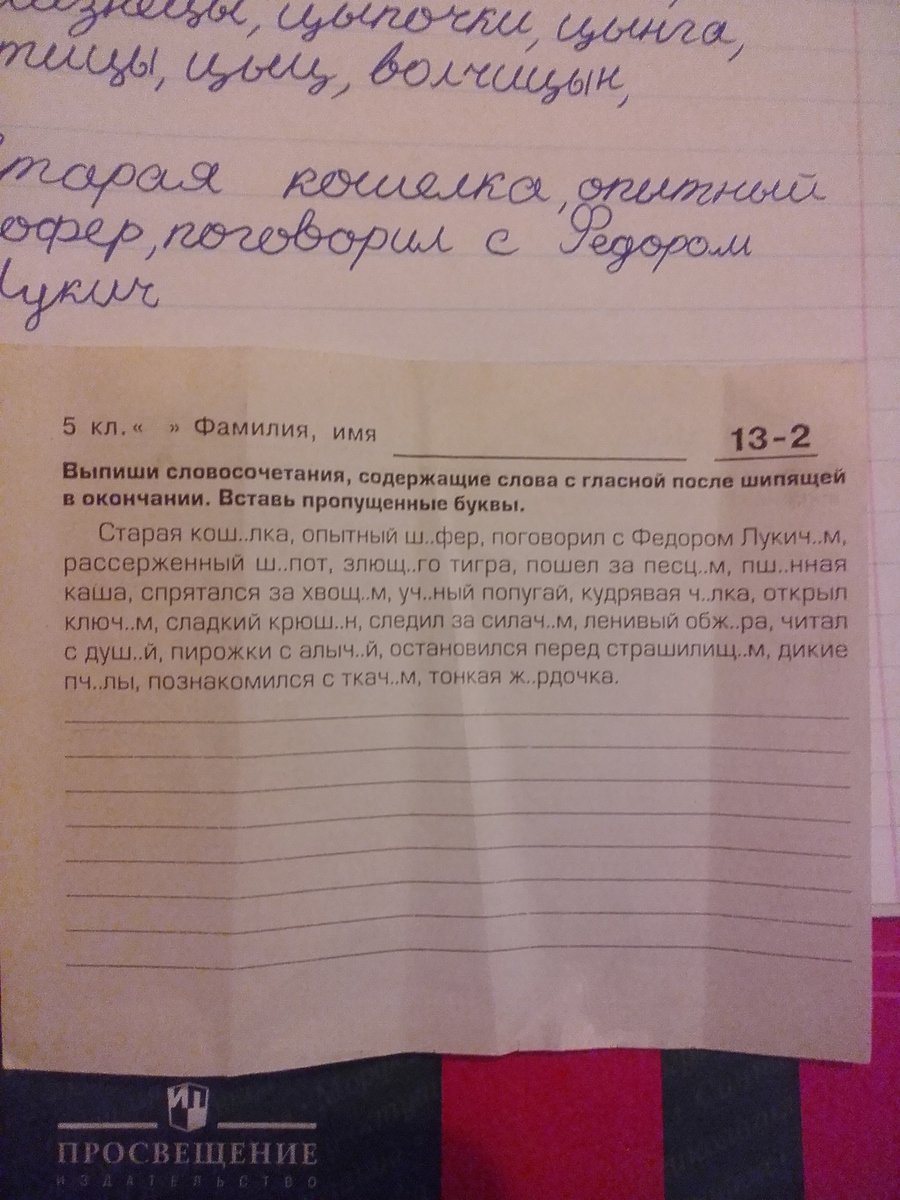 цыпочки, цынга,
тицы, цыц, волчицын,
тарая кошелка, опытный
офер, поговорил с Федором
Лукич
5 кл. « » Фамилия, имя
13-2
Выпиши словосочетания, содержащие слова с гласной после шипящей
в окончании. Вставь пропущенные буквы.
Старая кош..лка, опытный ш..фер, поговорил с Федором Лукич..м,
рассерженный ш..пот, злющ..го тигра, пошел за песц..м, пш..нная
каша, спрятался за хвощ..м, уч..ный попугай, кудрявая ч..лка, открыл
ключ..м, сладкий крюш..н, следил за силач..м, ленивый обж..ра, читал
с душ..й, пирожки с алыч..й, остановился перед страшилищ..м, дикие
пч..лы, познакомился с ткач..м, тонкая ж..рдочка.
ИП
ПРОСВЕЩЕНИЕ
ИЗДАТЕЛЬСТВО